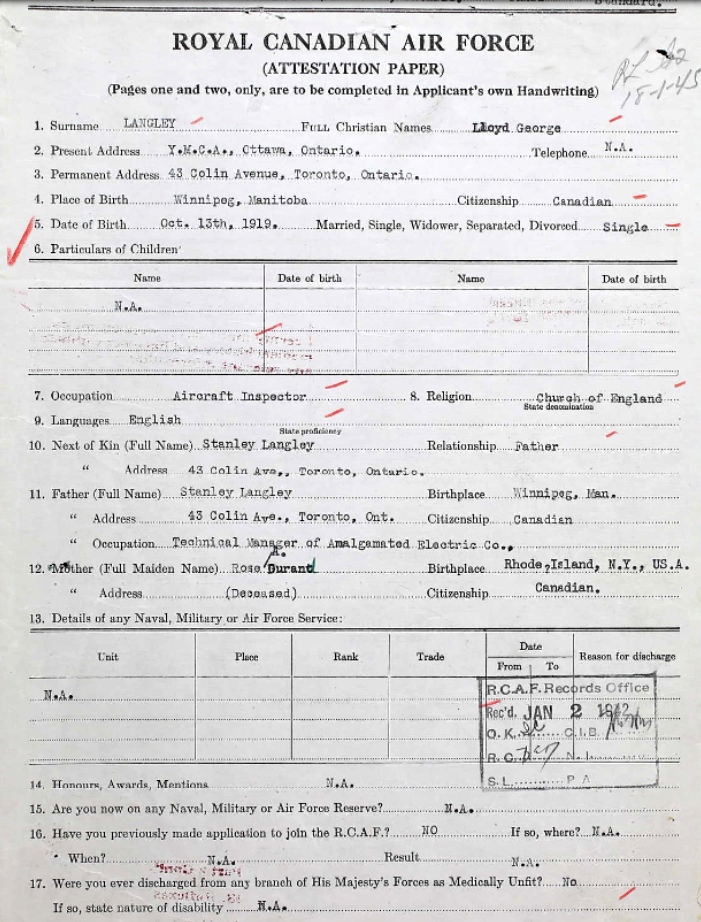 Standard.
ROYAL CANADIAN AIR FORCE
(ATTESTATION PAPER)
(Pages one and two, only, are to be completed in Applicant's own Handwriting)
18-1-45
1. Surname LANGLEY FULL Christian Names Lloyd George
2. Present Address Y.M.C.A., Ottawa, Ontario. Telephone N.A.
3. Permanent Address 43 Colin Avenue, Toronto, Ontario.
4. Place of Birth Winnipeg, Manitoba Citizenship Canadian
5. Date of Birth Oct. 13th, 1919. Married, Single, Widower, Separated, Divorced Single
6. Particulars of Children
Name Date of birth Name Date of birth
N.A.
7. Occupation Aircraft Inspector 8. Religion Church of England
State denomination
9. Languages English
State proficiency
10. Next of Kin (Full Name) Stanley Langley Relationship Father
" Address 43 Colin Ave., Toronto, Ontario.
11. Father (Full Name) Stanley Langley Birthplace Winnipeg, Man.
" Address 43 Colin Ave., Toronto, Ont. Citizenship Canadian
" Occupation Technical Manager of Amalgamated Electric Co.,
12. Mother (Full Maiden Name) Rose A. Durand Birthplace Rhode Island, N.Y., U.S.A.
" Address (Deceased) Citizenship Canadian.
13. Details of any Naval, Military or Air Force Service:
Unit Place Rank Trade Date Reason for discharge
From To
N.A.
R.C.A.F. Records Office
Rec'd. JAN 2 1942
O.K. C.I.B.
R.C. N.I.
S.L. P A
14. Honours, Awards, Mentions N.A.
15. Are you now on any Naval, Military or Air Force Reserve? N.A.
16. Have you previously made application to join the R.C.A.F.? NO If so, where? N.A.
When? N.A. Result N.A.
17. Were you ever discharged from any branch of His Majesty's Forces as Medically Unfit? No
If so, state nature of disability N.A.